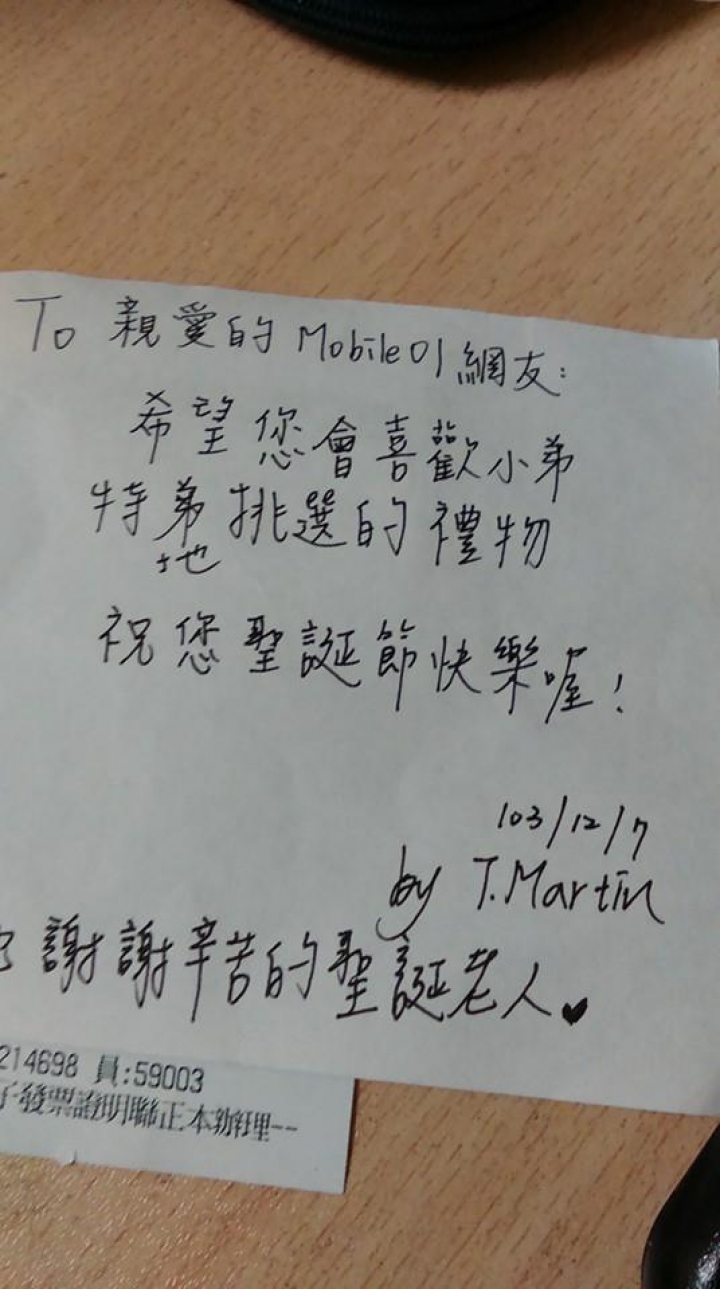 To 親愛的Mobile01網友:
希望您會喜歡小弟
特弟挑選的禮物
地
祝您聖誕節快樂喔!
103/12/7
by T.Martin
謝謝辛苦的聖誕老人♥
214698 員:59003
子發票證明聯正本辦理--